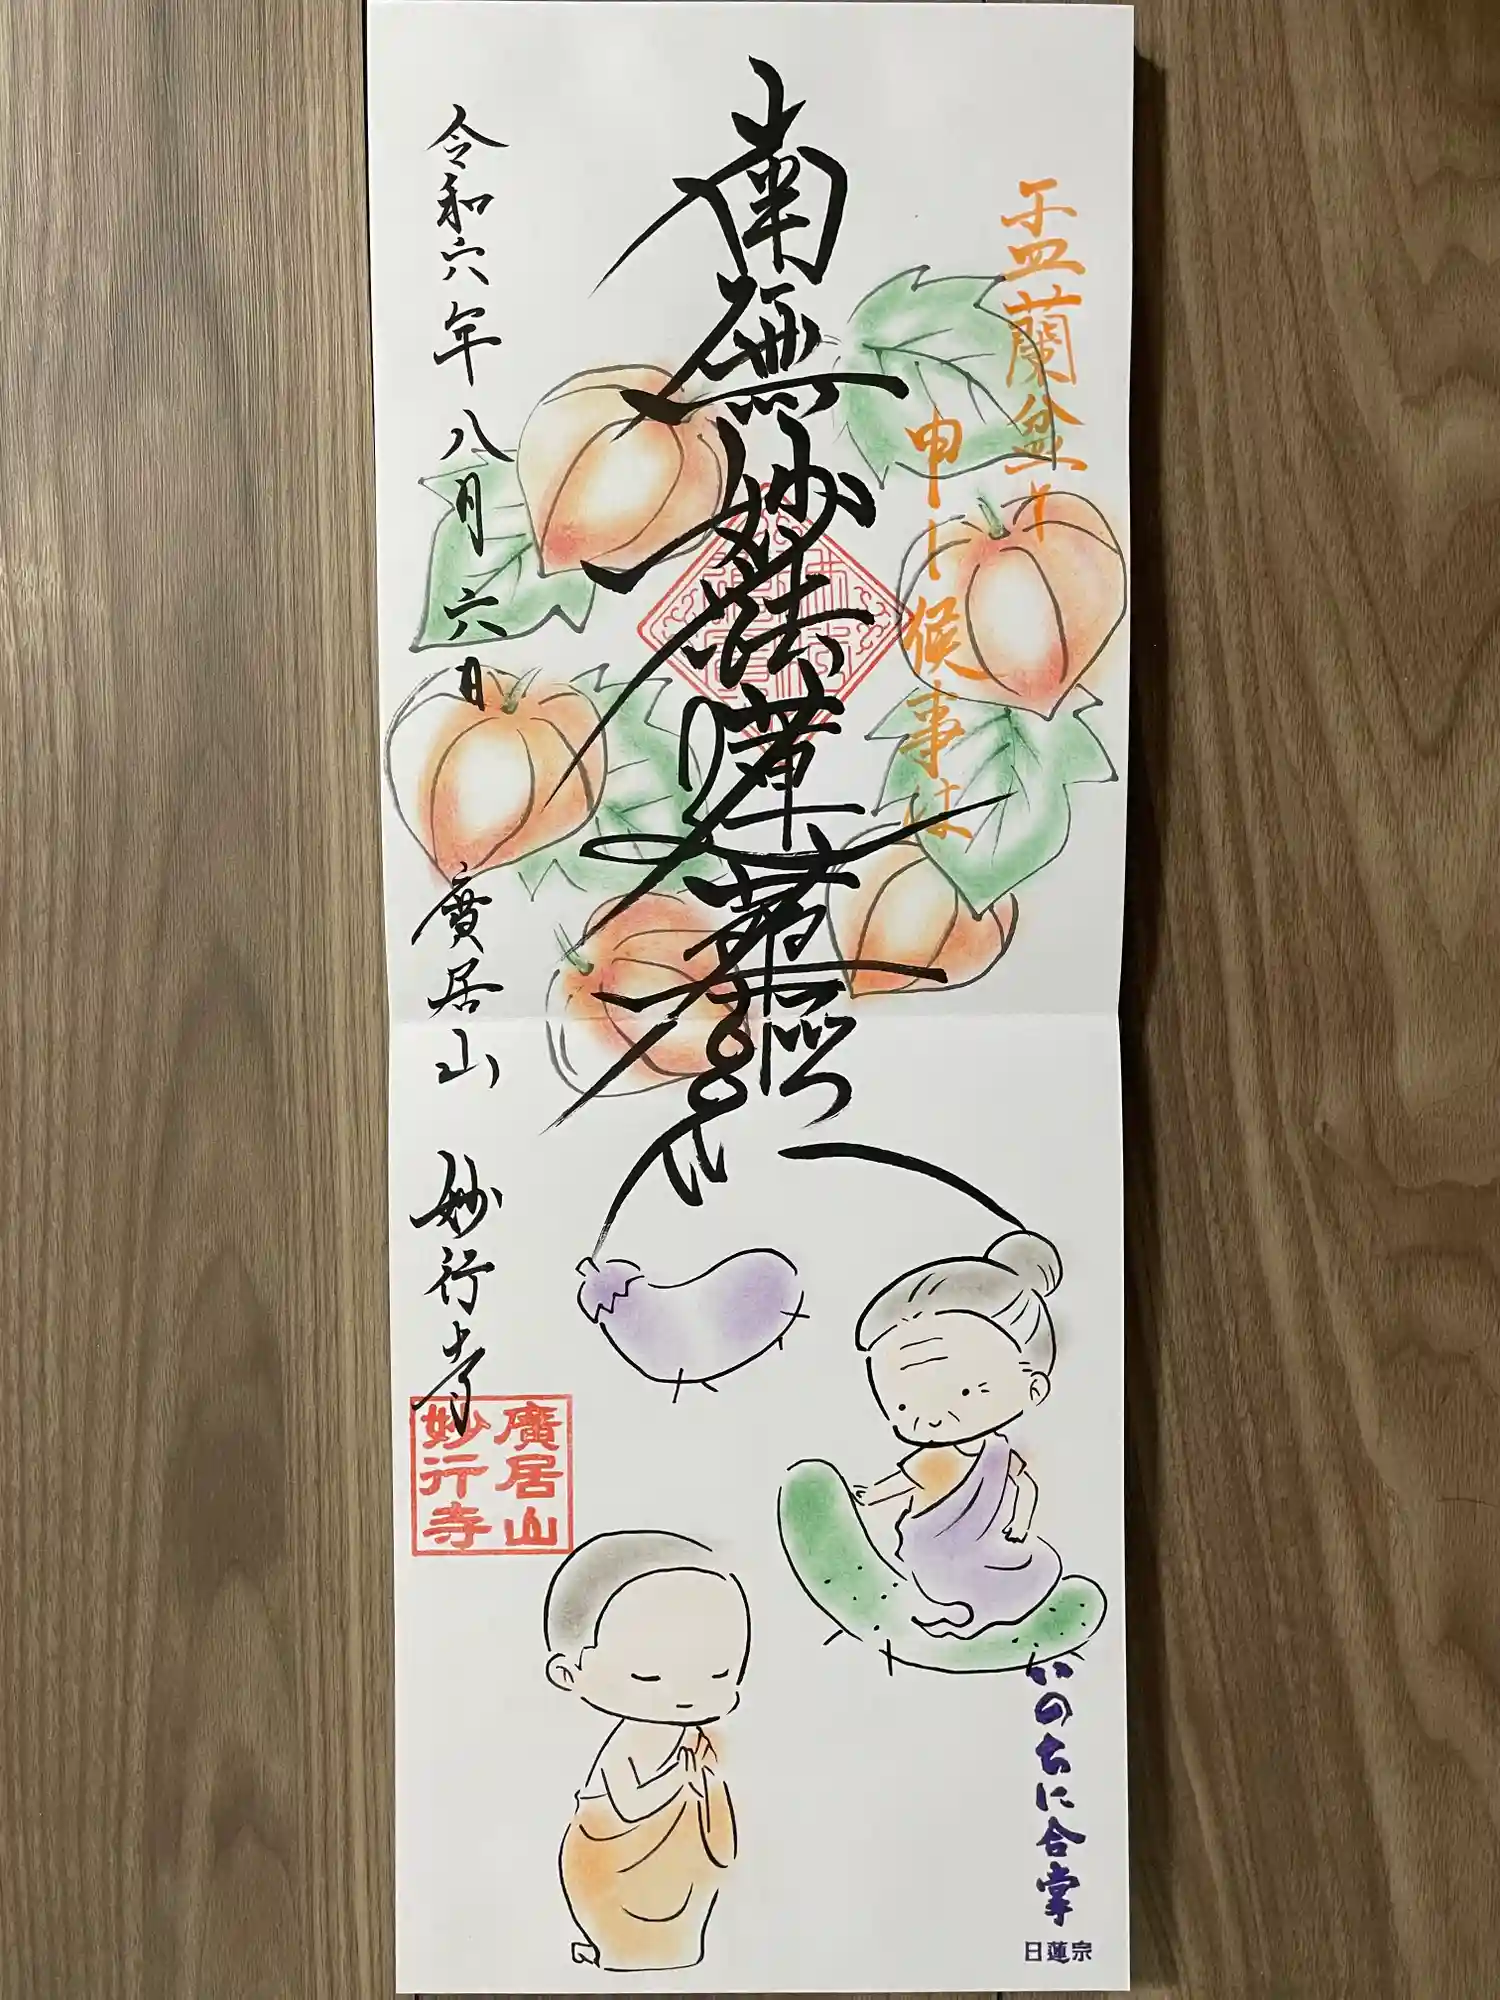 盂蘭盆と
申し候事は
南無妙法蓮華経
令和六年八月六日
廣居山 妙行寺
廣居山
妙行寺
いのちに合掌
日蓮宗